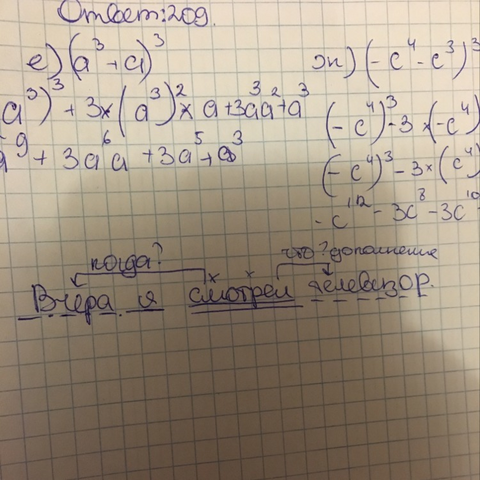 Ответ: 209.
е) (a³ + a)³
a³)³ + 3×(a³)²×a+3a³a²+a³
a⁹ + 3a⁶a + 3a⁵ + a³
ж) (-c⁴ - c³)³
(-c⁴)³ - 3×(-c⁴)
(-c⁴)³ - 3×(c⁴)
-c¹² - 3c⁸ - 3c¹⁰
когда? что? дополнение
Вчера я смотрел телевизор.